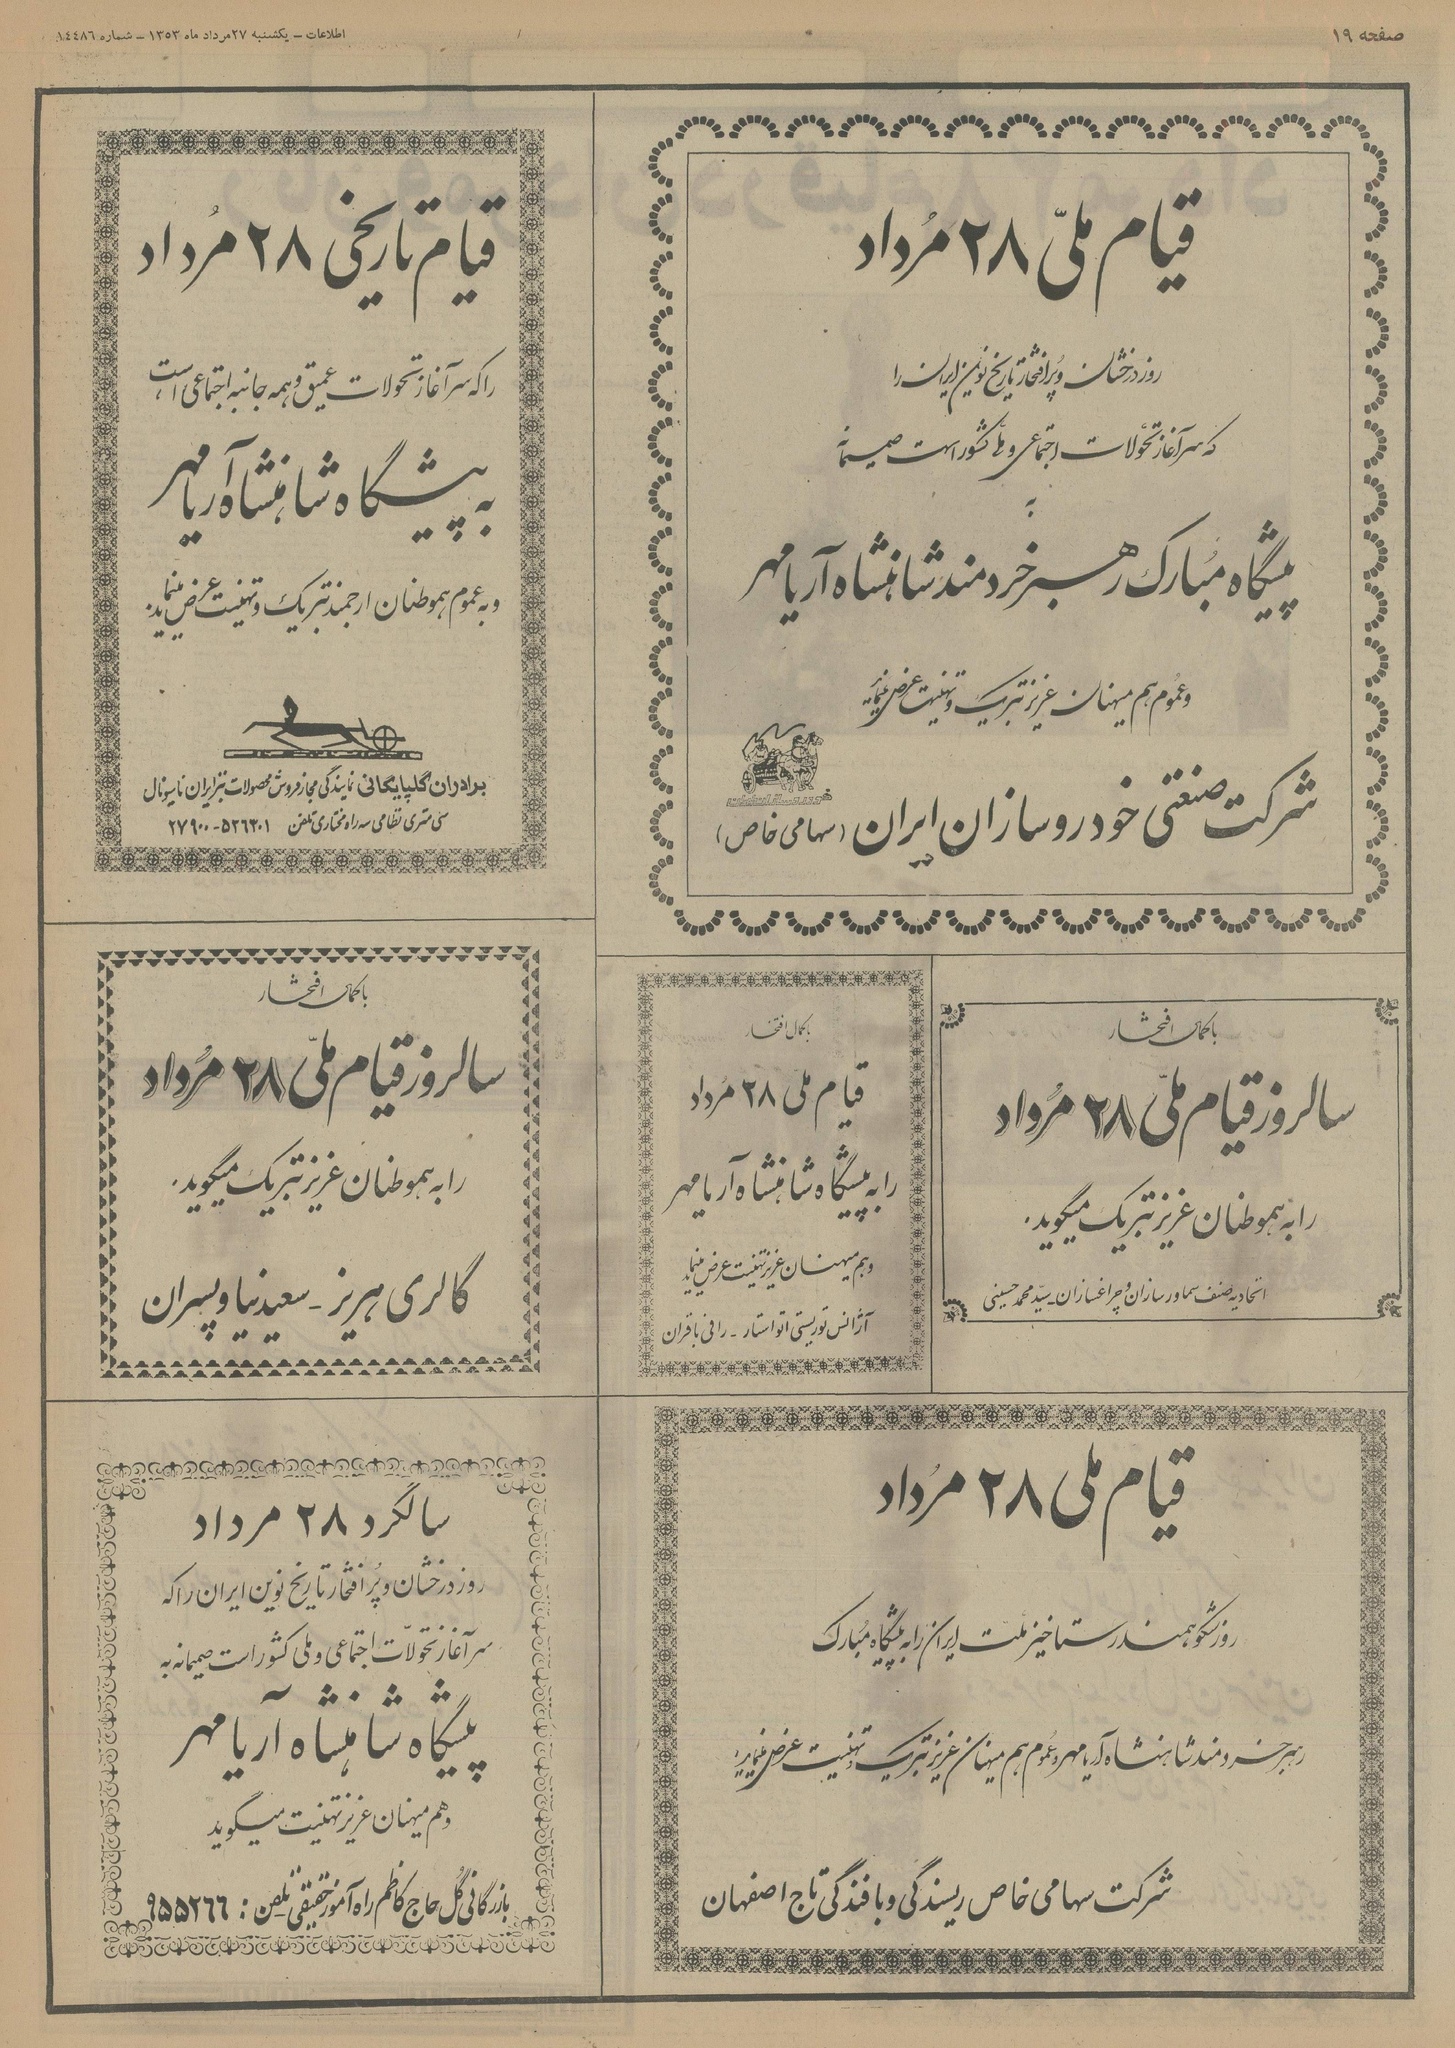 صفحه ۱۹
اطلاعات – یکشنبه ۲۷ مرداد ماه ۱۳۵۳ – شماره ۱۴۴۸۶
قیام ملّی ۲۸ مُرداد
روز درخشان و پُر افتخار تاریخ نوین ایران را
که سرآغاز تحولات اجتماعی و ملی کشور است صمیمانه
به
پیشگاه مُبارک رهبر خردمند شاهنشاه آریامهر
و عمُوم هم میهنان عزیز تبریک و تهنیت عرض مینماید
شرکت صنعتی خودروسازان ایران (سهامی خاص)
قیام تاریخی ۲۸ مُرداد
را که سرآغاز تحولات عمیق و همه جانبه اجتماعی است،
به پیشگاه شاهنشاه آریامهر
و به عموم هموطنان ارجمند تبریک و تهنیت عرض مینماید.
برادران گلپایگانی نمایندگی مجاز فروش محصولات تیزایران ناسیونال
سی متری نظامی سه راه مختاری تلفن ۵۳۶۲۰۱-۲۷۹۰۰
باکمال افتخار
سالروز قیام ملّی ۲۸ مُرداد
را به هموطنان عزیز تبریک میگوید.
اتحادیه صنف سماورسازان و چراغسازان ـ سیّد محمد حسینی
باکمال افتخار
قیام ملی ۲۸ مرداد
را به پیشگاه شاهنشاه آریامهر
و هم میهنان عزیز تهنیت عرض مینماید
آژانس توریستی اتو استار ـ رافی باقران
باکمال افتخار
سالروز قیام ملّی ۲۸ مُرداد
را به هموطنان عزیز تبریک میگوید.
گالری هریز ـ سعیدنیا و پسران
قیام ملی ۲۸ مُرداد
روز شکوهمند رستاخیز ملّت ایران را به پیشگاه مُبارک
رهبر خردمند شاهنشاه آریامهر و عمُوم هم میهنان عزیز تبریک و تهنیت عرض مینماید.
شرکت سهامی خاص ریسندگی و بافندگی تاج اصفهان
سالگرد ۲۸ مرداد
روز درخشان و پُر افتخار تاریخ نوین ایران را که
سرآغاز تحولّات اجتماعی و ملی کشور است صمیمانه به
پیشگاه شاهنشاه آریامهر
و هم میهنان عزیز تهنیت میگوید
بازرگانی گُل حاج کاظم راه آموز حقیقی تلفن: ۹۵۵۲۶۶